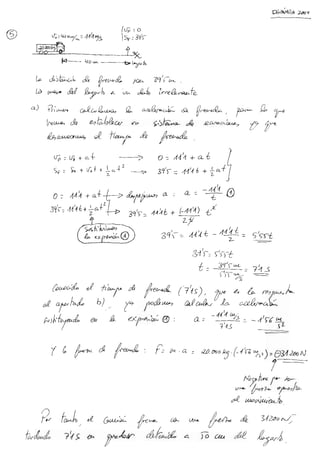 Dinámica 2004
⑤
V₀ = 40 km/h = 11'1 m/s
Vf = 0
Sf = 39'5
40 m
lagarto
La distancia de frenado son 39'5 m.
La masa del lagarto es un dato irrelevante.
a) Primero calculamos la aceleración de frenado, para lo que
hemos de establecer un sistema de ecuaciones, ya que
desconocemos el tiempo de frenado
Vf = V₀ + at → 0 = 11'1 + a t
Sf = S₀ + V₀t + 1/2 a t² → 39'5 = 11'1 t + 1/2 a t²
0 = 11'1 + a t → despejamos a : a = -11'1/t ①
39'5 = 11'1t + 1/2 a t² → 39'5 = 11'1t + (-11'1)/2t t²
Sustituimos
la expresión ①
39'5 = 11'1t - 11'1t/2 = 5'55t
39'5 = 5'55t
t = 39'5 m / 5'55 m/s = 7'1 s
Conocido el tiempo de frenado (7'1s), que es la respuesta
al apartado b), ya podemos calcular la aceleración
sustituyendo en la expresión ① : a = -11'1 m/s / 7'1 s = -1'56 m/s²
Y la fuerza de frenado : F = m · a = 20.000 kg · (-1'56 m/s²) = ⊖31200 N
Negativa por ser
una fuerza opuesta
al movimiento
Por tanto, el camión frena con una fuerza de 31200 N,
tardando 7'1 s en quedar detenido a 50 cm del lagarto.